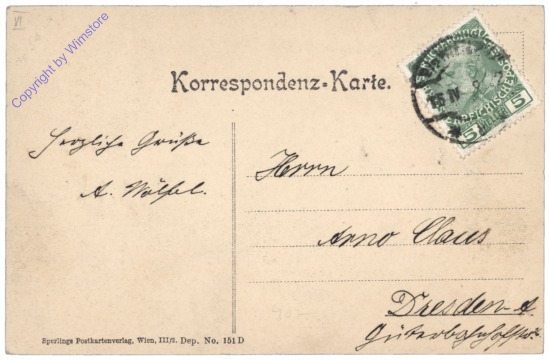 VI
Copyright by Wimstore
Korrespondenz-Karte.
5 5
Herzliche Grüße
A. Wölfel.
Herrn
Arno Claus
Dresden-A.
Güterbahnhofstr.
Sperlings Postkartenverlag, Wien, III/2. Dep. No. 151 D